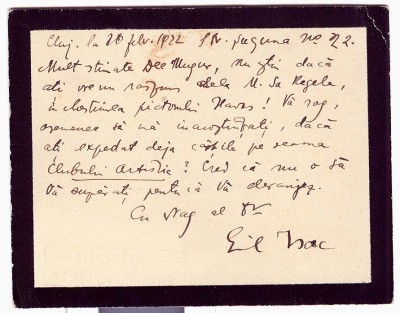 Cluj, la 20 febr. 1922 Str. Șaguna no. 22.
Mult stimate Dle Mugur, nu știu dacă
ați vreun răspuns dela M. Sa Regele,
în chestiunea pictorului Haraș! Vă rog,
asemenea să mă încunoștințați, dacă
ați expedat deja cărțile pe seama
Clubului Artistic? Cred că nu o să
Vă supărați pentrucă Vă deranjez.
Cu drag al Dv
Emil Isac